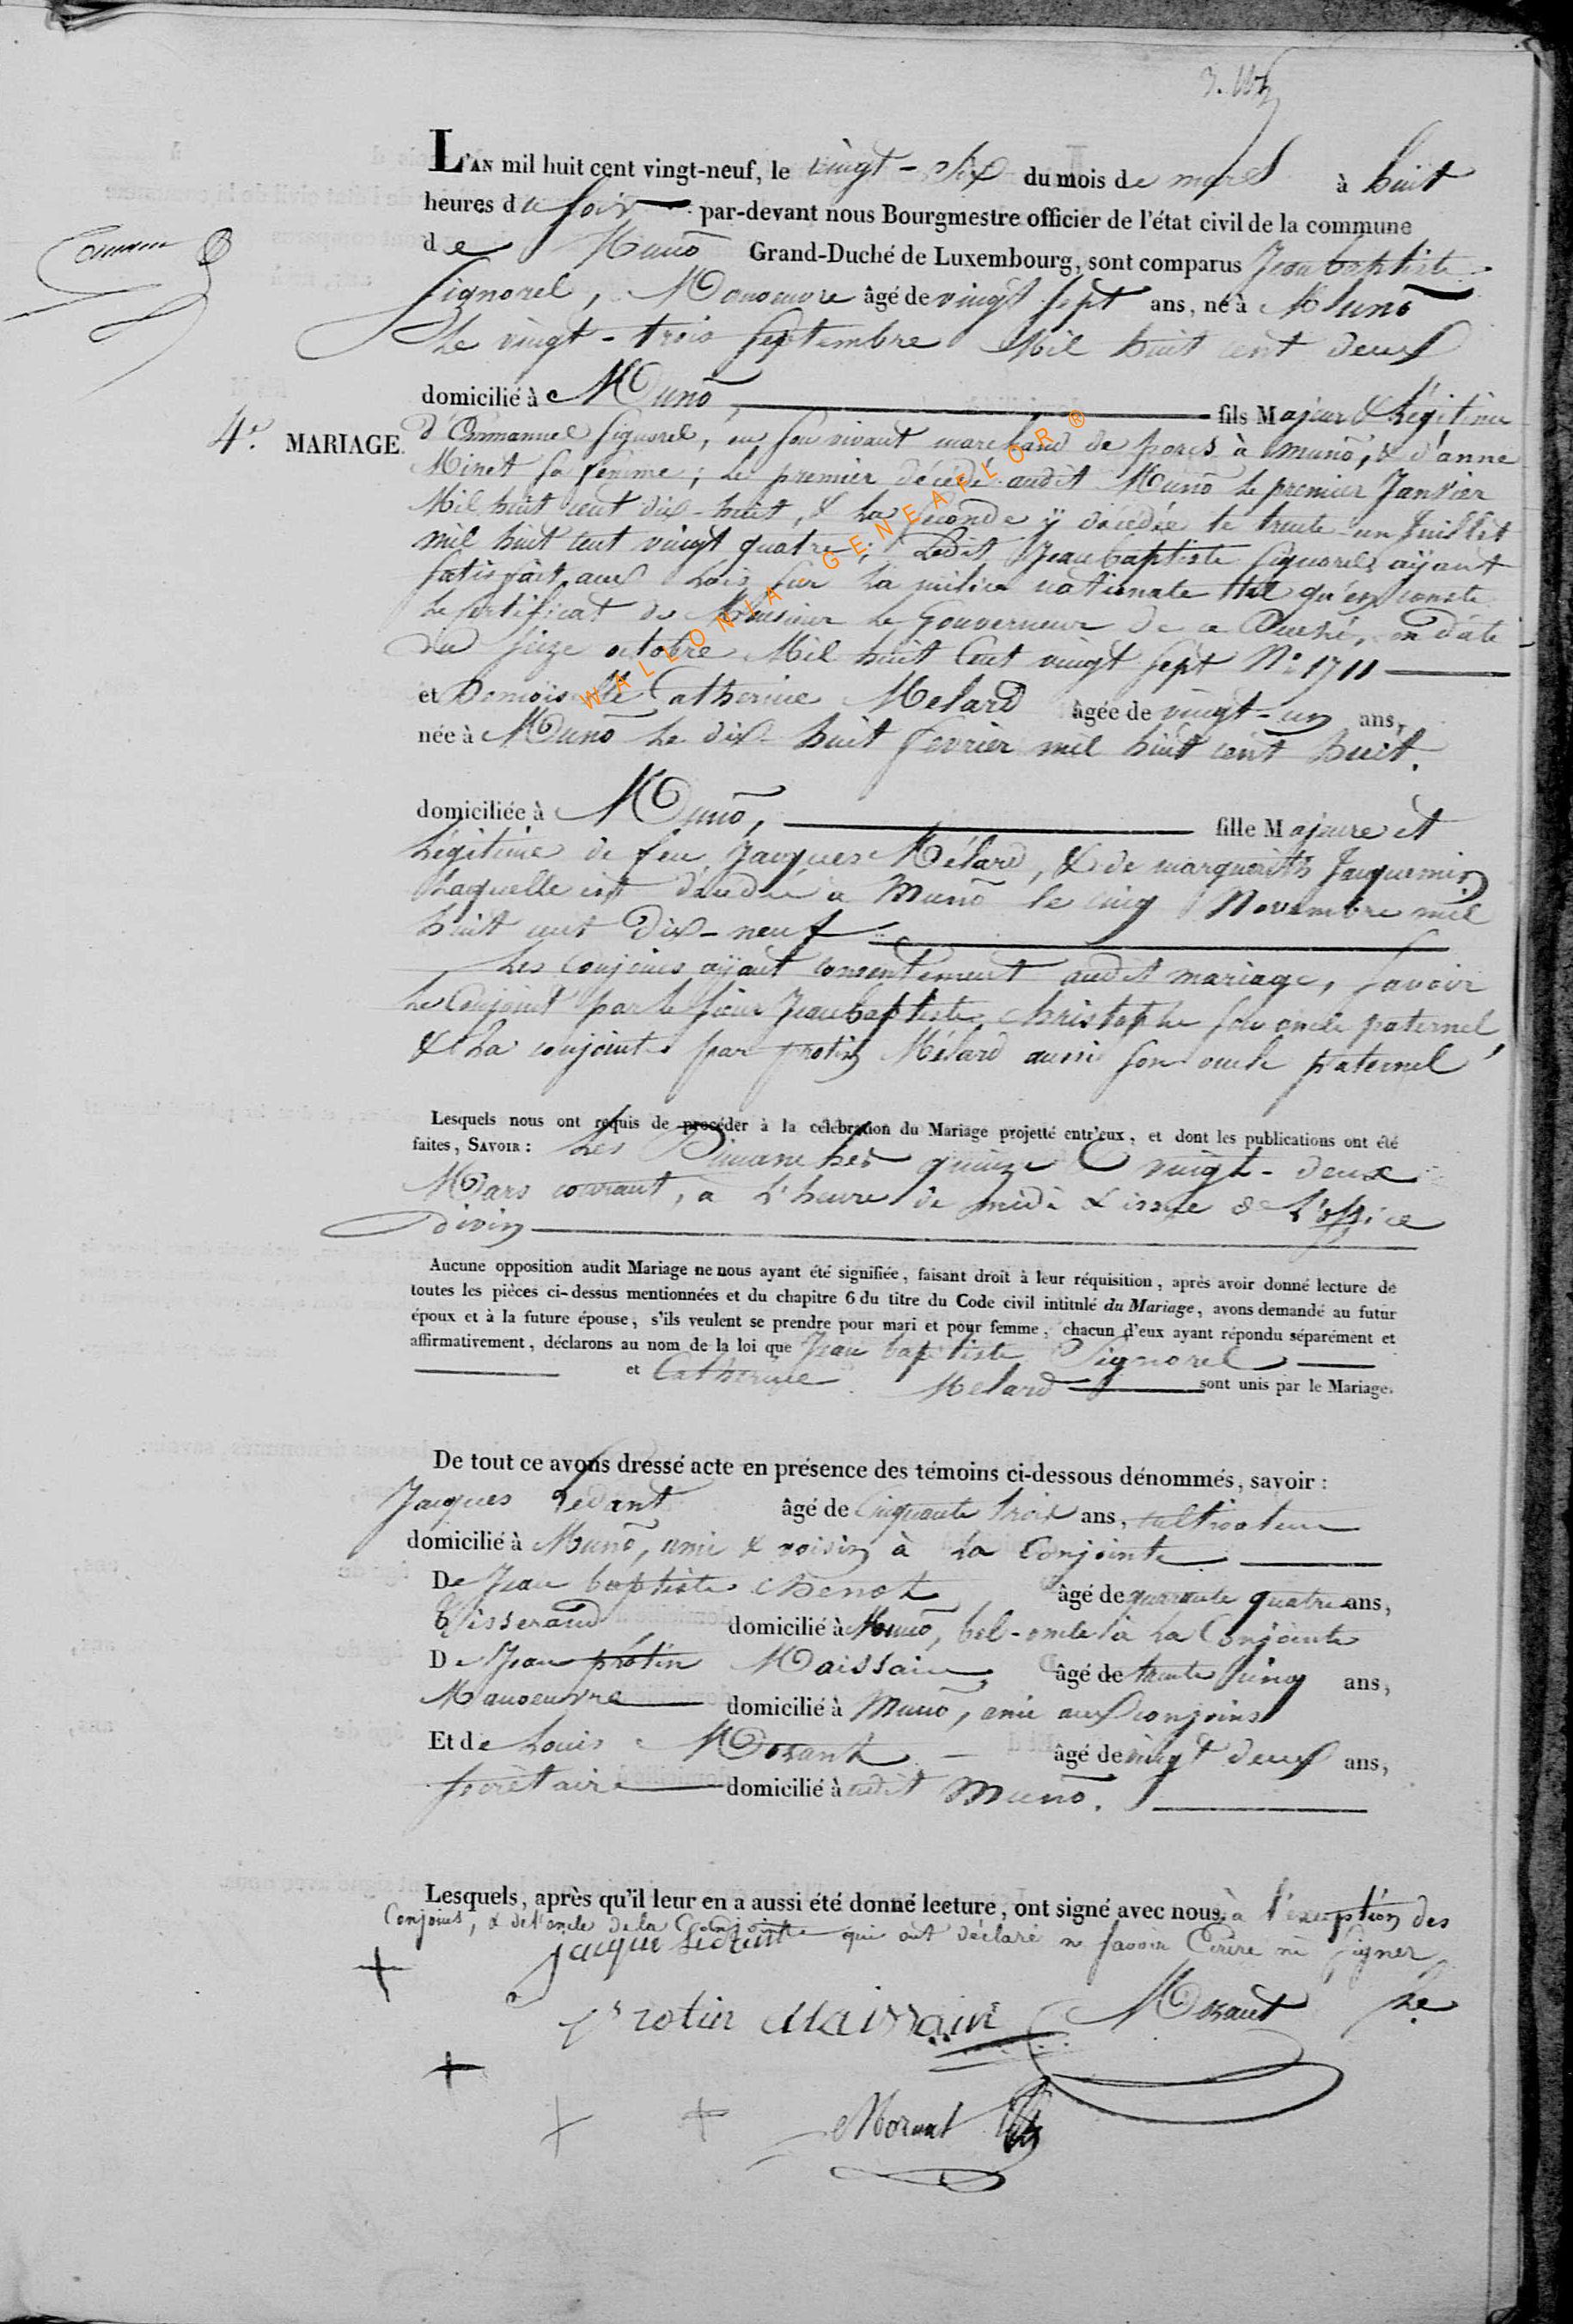 L'AN mil huit cent vingt-neuf, le vingt-six du mois de mars à huit
heures du soir par-devant nous Bourgmestre officier de l'état civil de la commune
de Muno Grand-Duché de Luxembourg, sont comparus Jean baptiste
Signorel, Manoeuvre âgé de vingt sept ans, né à Muno
Le vingt-trois Septembre Mil huit cent deux
domicilié à Muno, fils Majeur & Légitime
4e. MARIAGE.
d'Emmanuel Signorel, en son vivant marchand de porcs à muno, & d'anne
Minet sa femme; Le premier décédé audit Muno Le premier Janvier
Mil huit cent dix-huit, & La Seconde ÿ décédée le trente-un Juillet
mil huit cent vingt quatre; Ledit Jean baptiste Signorel aÿant
Satisfait aux Lois sur La milice nationale tel qu'en conste
Le Certificat de Monsieur Le Gouverneur de ce Duché, en date
du seize octobre Mil huit Cent vingt Sept N° 1711
et Demoiselle Catherine Melard âgée de vingt-un ans,
née à Muno Le dix-huit fevrier mil huit cent huit.
domiciliée à Muno, fille Majeure et
Légitime de feu Jacques Mélard, & de marguerite Jacquemin
Laquelle est décedée a Muno le cinq Novembre mil
huit cent Dix-neuf
Les Conjoins aÿant consentement audit mariage, Savoir
Le Conjoint par le sieur Jean baptiste Christophe son oncle paternel,
& La conjointe par protin Mélard aussi son oncle paternel
Lesquels nous ont requis de procéder à la célébration du Mariage projetté entr'eux, et dont les publications ont été
faites, SAVOIR: Les Dimanches quinze & vingt-deux
Mars courant, a L'heure de midi & issue de L'office
divin
Aucune opposition audit Mariage ne nous ayant été signifiée, faisant droit à leur réquisition, après avoir donné lecture de
toutes les pièces ci-dessus mentionnées et du chapitre 6 du titre du Code civil intitulé du Mariage, avons demandé au futur
époux et à la future épouse, s'ils veulent se prendre pour mari et pour femme, chacun d'eux ayant répondu séparément et
affirmativement, déclarons au nom de la loi que Jean baptiste Signorel
et Catherine Melard sont unis par le Mariage.
De tout ce avons dressé acte en présence des témoins ci-dessous dénommés, savoir :
Jacques Ledant âgé de Cinquante trois ans, cultivateur
domicilié à Muno, ami & voisin à La Conjointe
De Jean baptiste Chenot âgé de quarante quatre ans,
Tisserand domicilié à Muno, bel-oncle à La Conjointe
De Jean protin Maissain âgé de trente cinq ans,
Manoeuvre domicilié à Muno, ami aux conjoins
Et de Louis Mozant âgé de vingt deux ans,
Secrétaire domicilié à audit Muno.
Lesquels, après qu'il leur en a aussi été donné lecture, ont signé avec nous, à l'exception des
Conjoins, & de l'oncle de la Conjointe qui ont déclaré ne savoir Ecrire ni Signer
jacque Ledent
Protin Maissain Mozant
Morant
WALLONIA GENEAFLOR ®